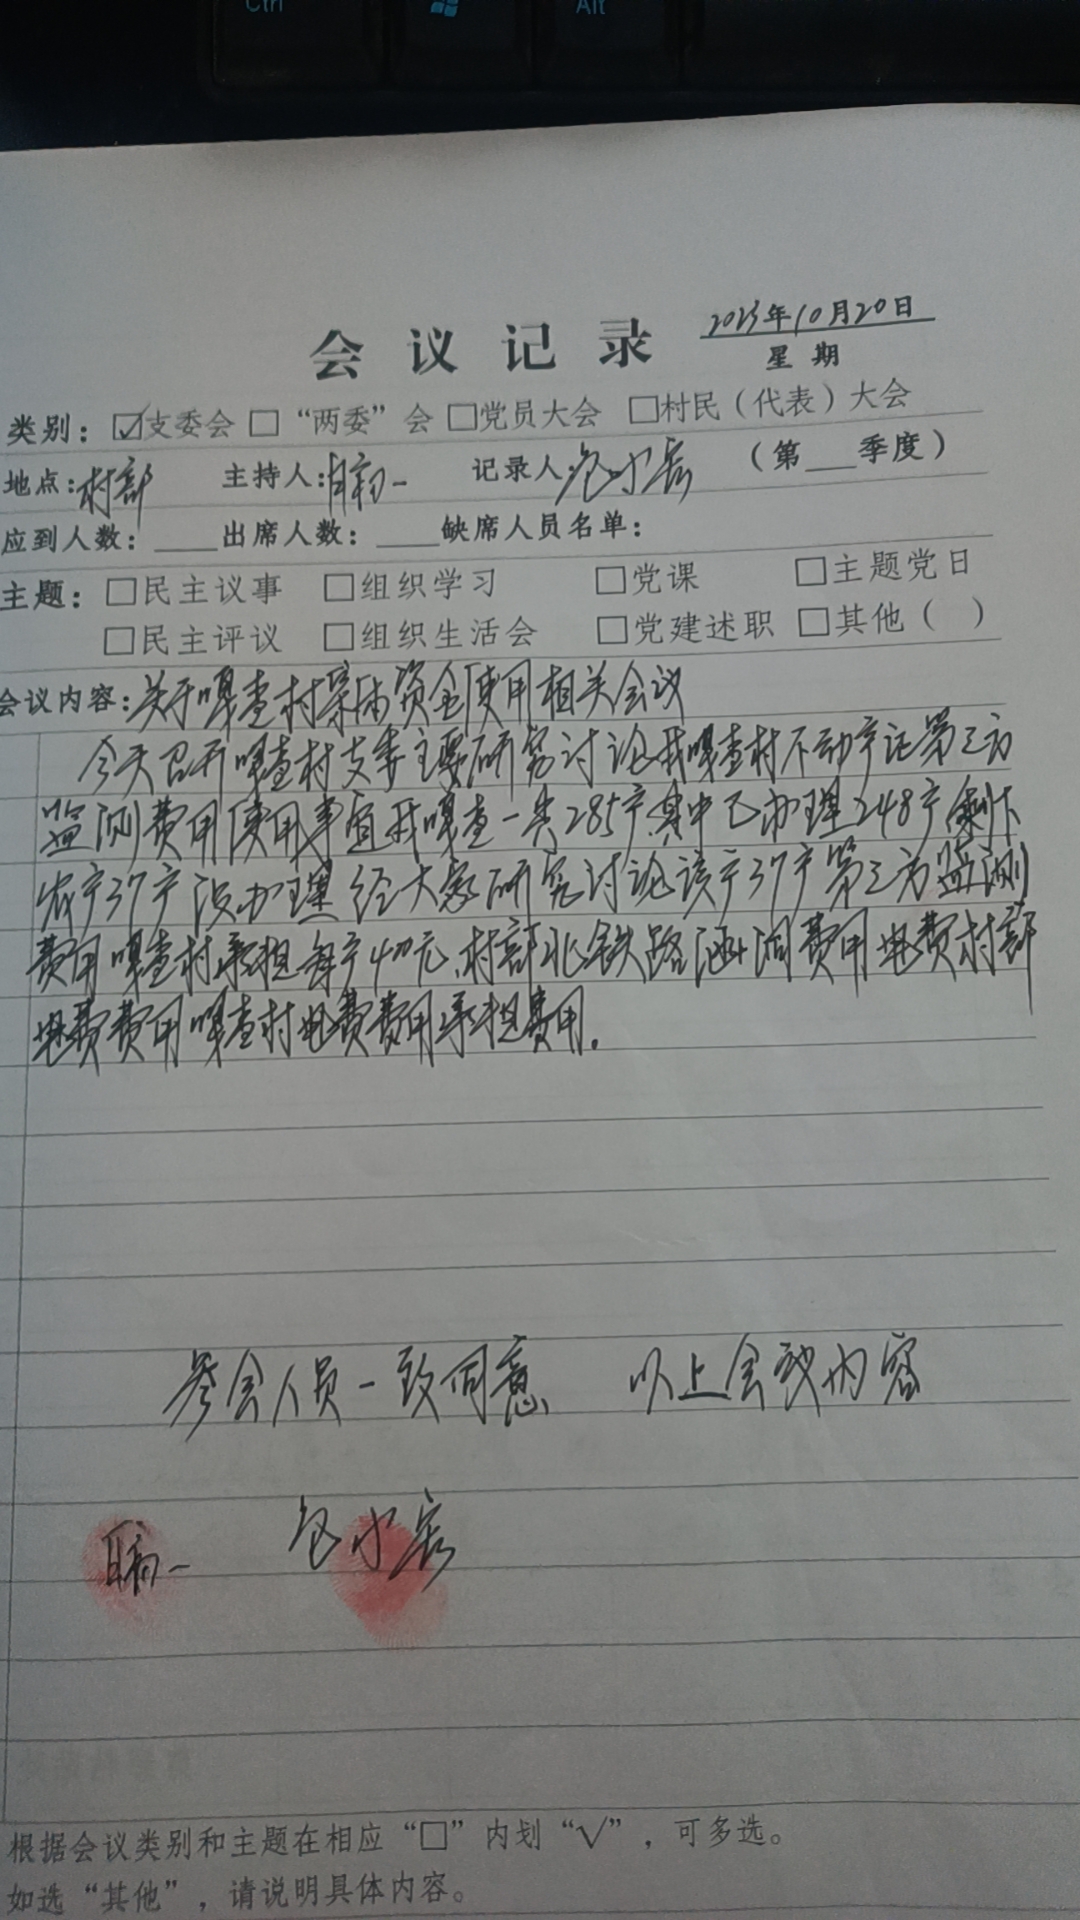 Ctrl
Alt
会议记录
2023年10月20日
星期
类别：☑支委会 □“两委”会 □党员大会 □村民（代表）大会
地点：村部 主持人： 记录人： （第___季度）
应到人数：____出席人数：____缺席人员名单：
主题：□民主议事 □组织学习 □党课 □主题党日
□民主评议 □组织生活会 □党建述职 □其他（ ）
会议内容：关于嘎查村资金使用相关会议
今天召开嘎查村支委主要研究讨论我嘎查村不动产证第三方
监测费用使用事宜我嘎查一共285户其中已办理248户剩下
农户37户没办理 经大家研究讨论该户37户第三方监测
费用嘎查村承担每户400元、村部北铁路涵洞费用电费村部
电费费用嘎查村电费费用承担费用.
参会人员一致同意 以上会议内容
根据会议类别和主题在相应“□”内划“√”，可多选。
如选“其他”，请说明具体内容。